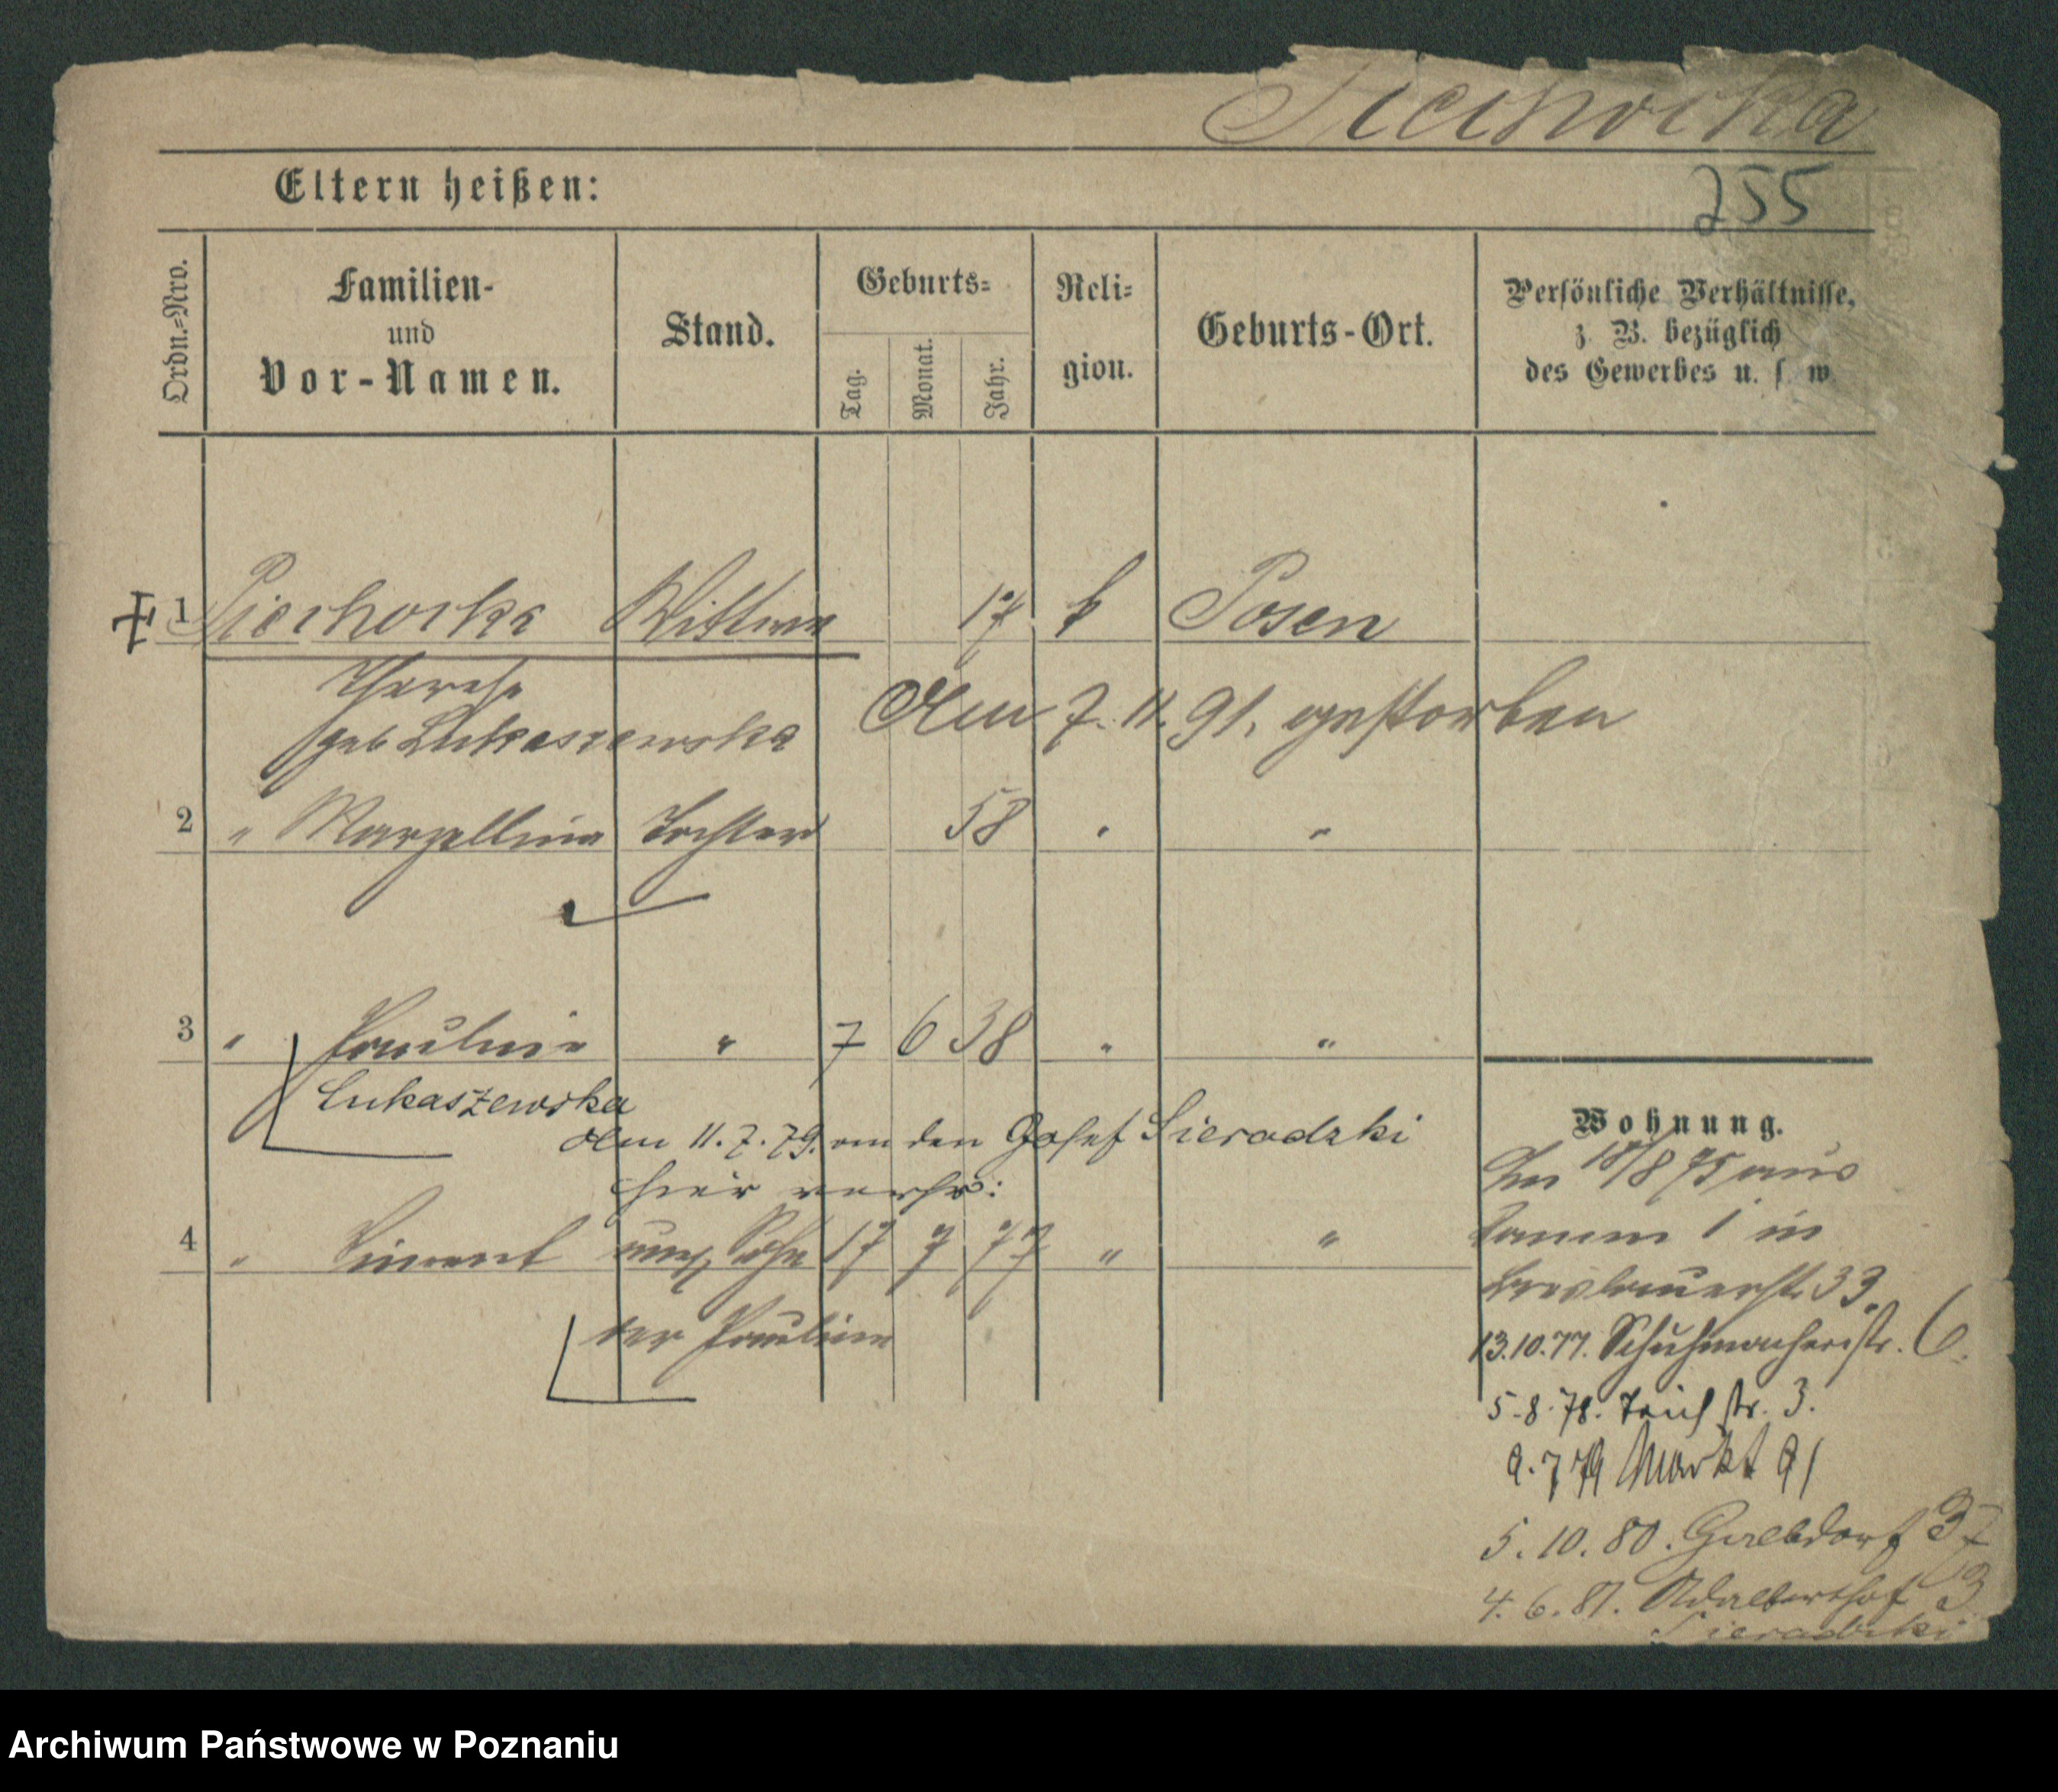 Piechocka
255
Eltern heißen:
Ordn.=Nro.
Familien-
und
Vor-Namen.
Stand.
Geburts=
Tag.
Monat.
Jahr.
Reli=
gion.
Geburts-Ort.
Persönliche Verhältnisse,
z. B. bezüglich
des Gewerbes u. s. w.
1 Piechocka Wittwe 17 k Posen
Therese
geb Lukaszewska
Am 7. 11. 91. gestorben
2 " Marzellina Tochter 58 " "
3 " Pauline " 7 6 38 " "
Lukaszewska
Am 11. 7. 79. an den Josef Sieradzki
hier verhr:
4 " Vincent uneh Sohn 17 7 77 " "
der Pauline
Wohnung.
18/8 75 aus
Damm 1 in
Breslauerstr 33.
13.10.77. Schuhmacherstr. 6.
5.8.78. Teichstr. 3.
9.7 79 Markt 91
5.10.80. Gerbdorf 37
4.6.81. Adalberthof 3
Sieradzki
Archiwum Państwowe w Poznaniu